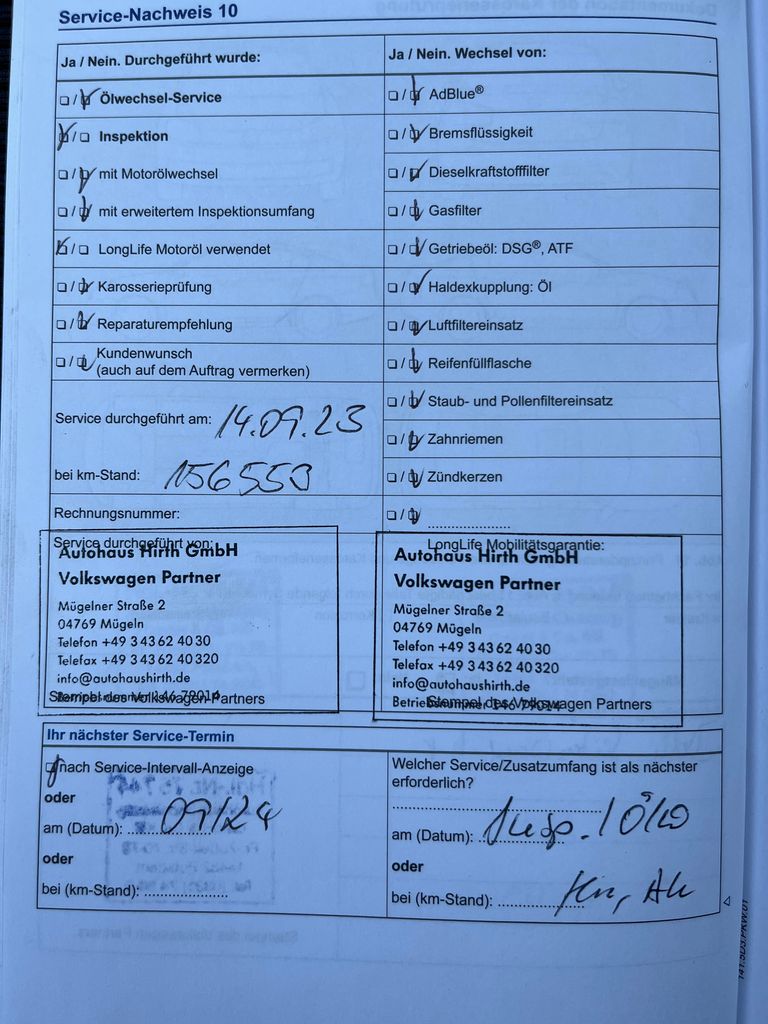 Service-Nachweis 10
Ja / Nein. Durchgeführt wurde:
Ölwechsel-Service
Inspektion
mit Motorölwechsel
mit erweitertem Inspektionsumfang
LongLife Motoröl verwendet
Karosserieprüfung
Reparaturempfehlung
Kundenwunsch
(auch auf dem Auftrag vermerken)
Service durchgeführt am: 14.09.23
bei km-Stand: 156553
Rechnungsnummer:
Service durchgeführt von:
Autohaus Hirth GmbH
Volkswagen Partner
Mügelner Straße 2
04769 Mügeln
Telefon +49 3 43 62 40 30
Telefax +49 3 43 62 40 320
info@autohaushirth.de
Betriebsnummer 146 79014
Stempel des Volkswagen Partners
Ja / Nein. Wechsel von:
AdBlue®
Bremsflüssigkeit
Dieselkraftstofffilter
Gasfilter
Getriebeöl: DSG®, ATF
Haldexkupplung: Öl
Luftfiltereinsatz
Reifenfüllflasche
Staub- und Pollenfiltereinsatz
Zahnriemen
Zündkerzen
LongLife Mobilitätsgarantie:
Autohaus Hirth GmbH
Volkswagen Partner
Mügelner Straße 2
04769 Mügeln
Telefon +49 3 43 62 40 30
Telefax +49 3 43 62 40 320
info@autohaushirth.de
Betriebsnummer 146 79014
Stempel des Volkswagen Partners
Ihr nächster Service-Termin
nach Service-Intervall-Anzeige
oder
am (Datum): 09/24
oder
bei (km-Stand):
Welcher Service/Zusatzumfang ist als nächster
erforderlich?
am (Datum): Insp. / ÖlW
oder
bei (km-Stand):